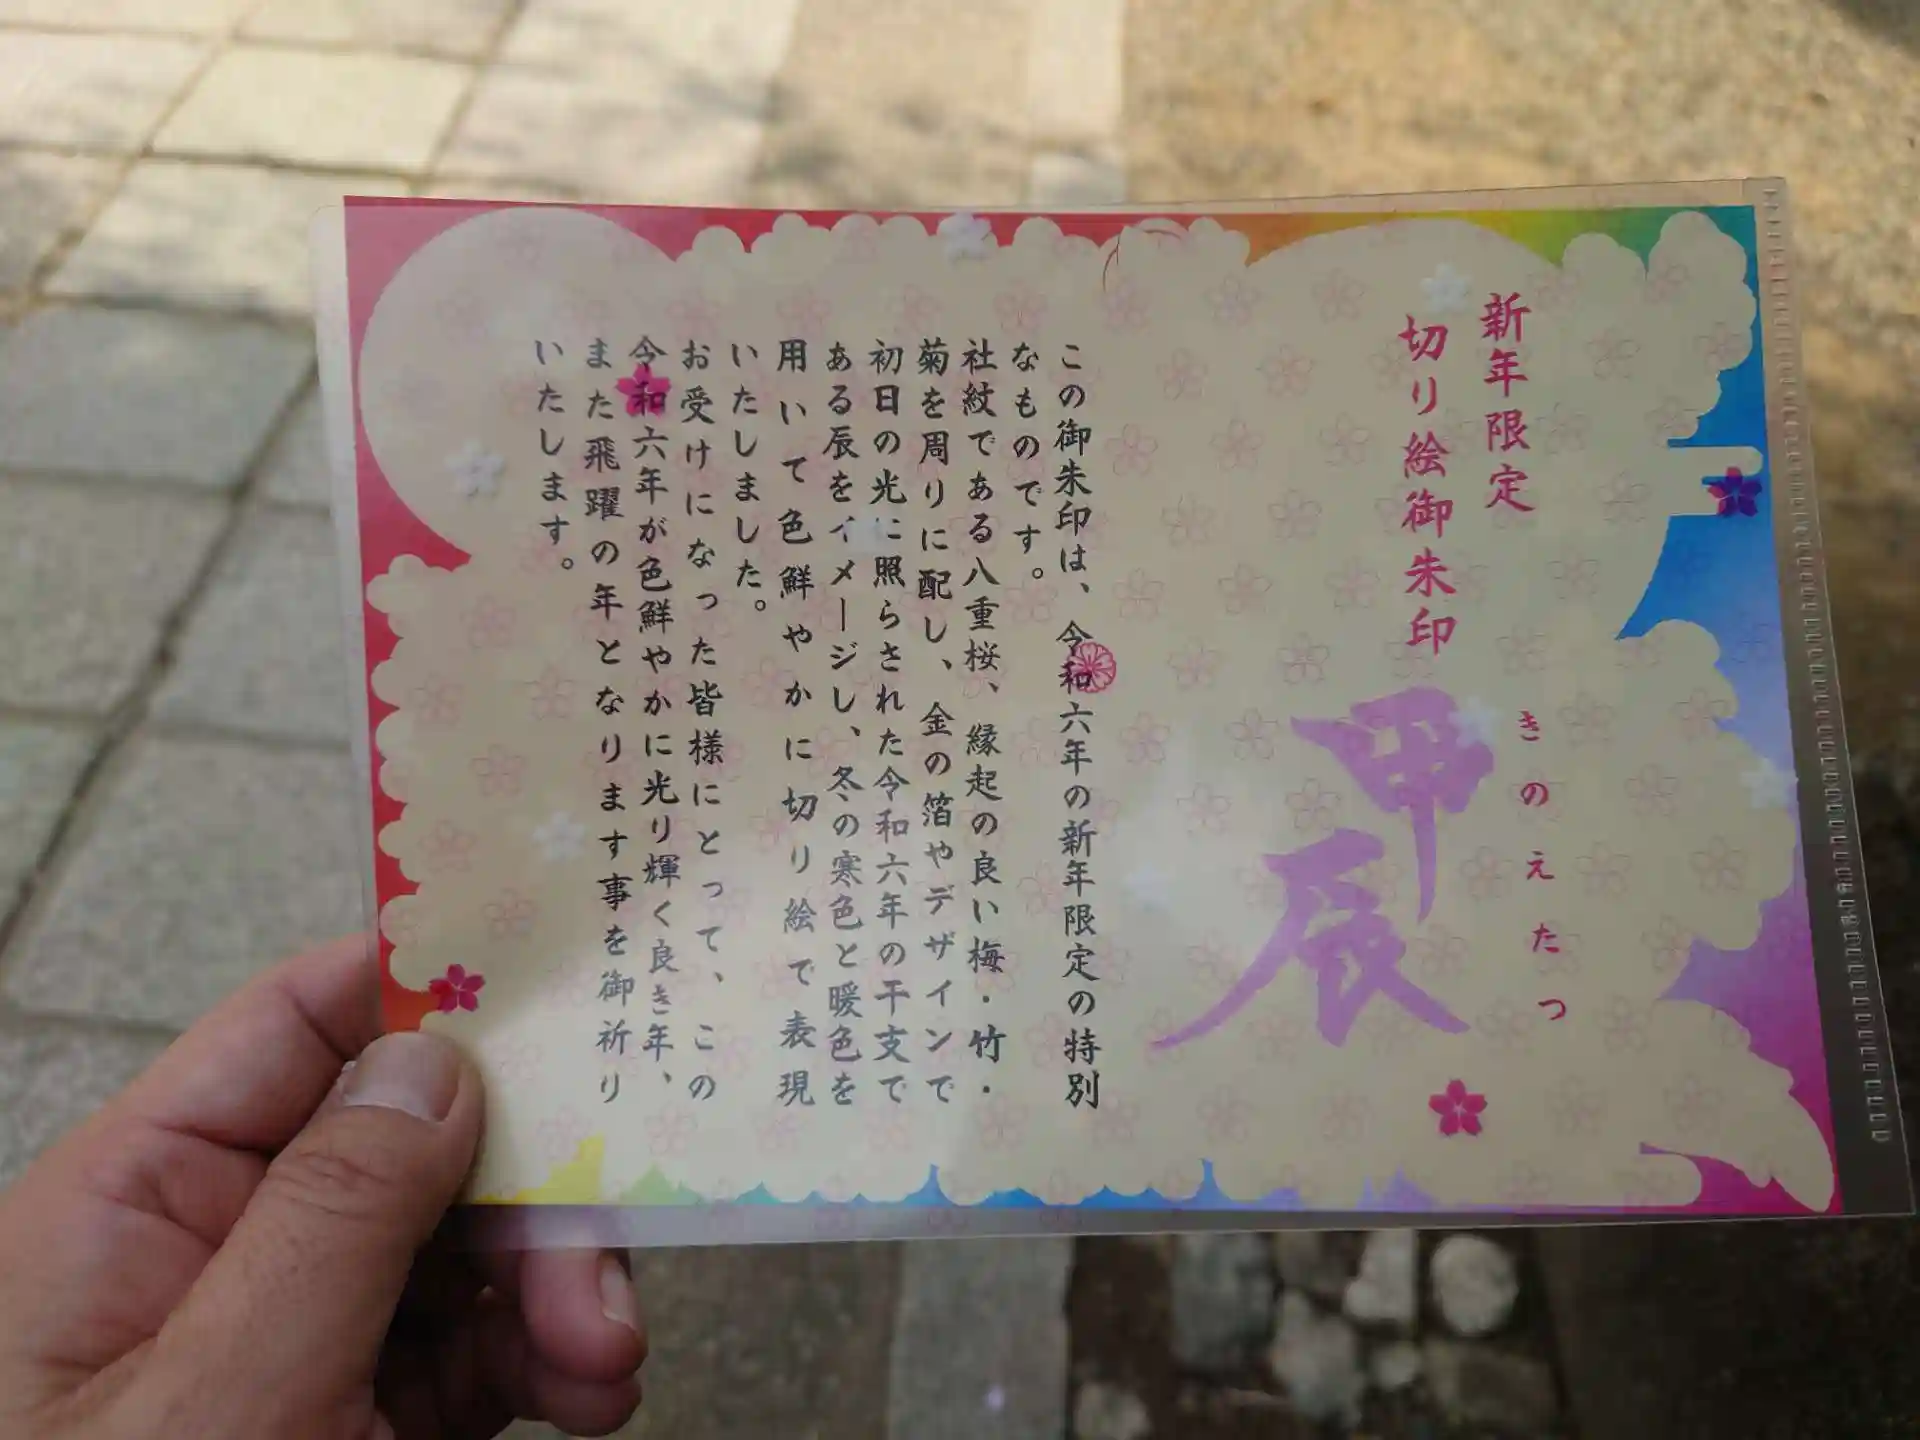 新年限定
切り絵御朱印
きのえたつ
甲辰
この御朱印は、令和六年の新年限定の特別
なものです。
社紋である八重桜、縁起の良い梅・竹・
菊を周りに配し、金の箔やデザインで
初日の光に照らされた令和六年の干支で
ある辰をイメージし、冬の寒色と暖色を
用いて色鮮やかに切り絵で表現
いたしました。
お受けになった皆様にとって、この
令和六年が色鮮やかに光り輝く良き年、
また飛躍の年となります事を御祈り
いたします。